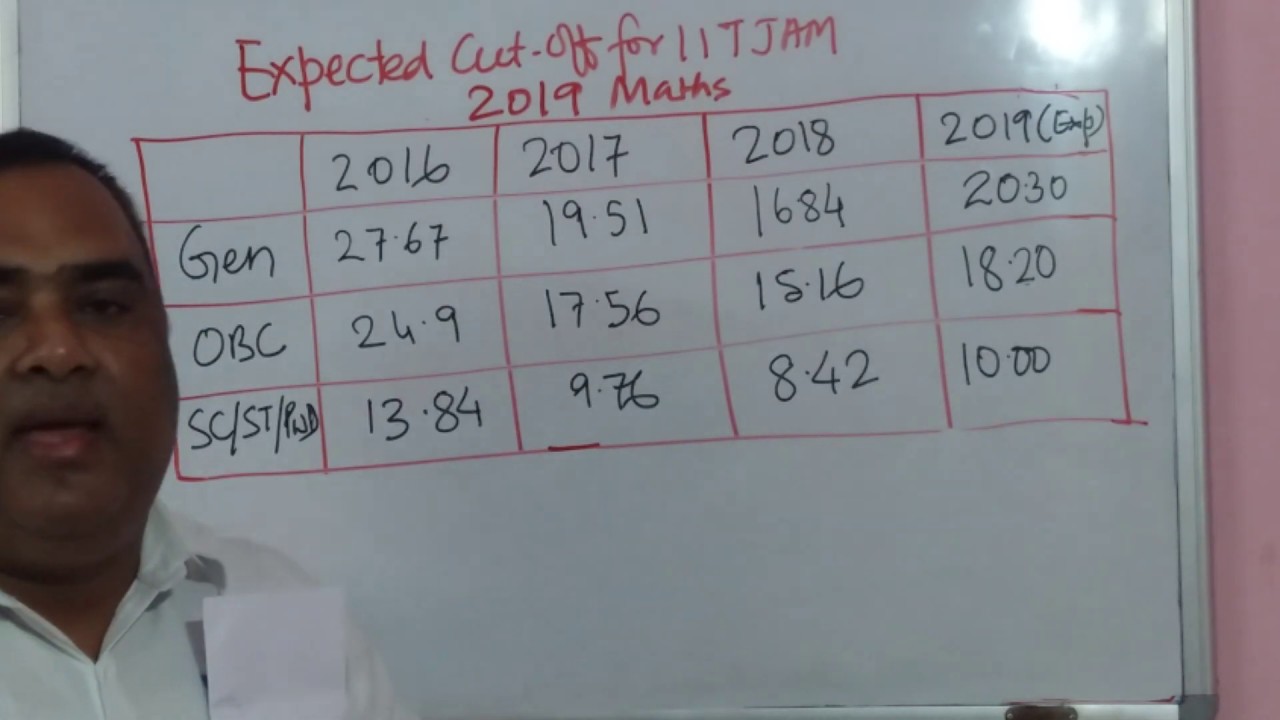 Expected Cut-Off for IIT JAM
2019 Maths
2016 2017 2018 2019 (Exp)
Gen 27.67 19.51 1684 2030
OBC 24.9 17.56 15.16 18.20
SC/ST/PWD 13.84 9.76 8.42 10.00